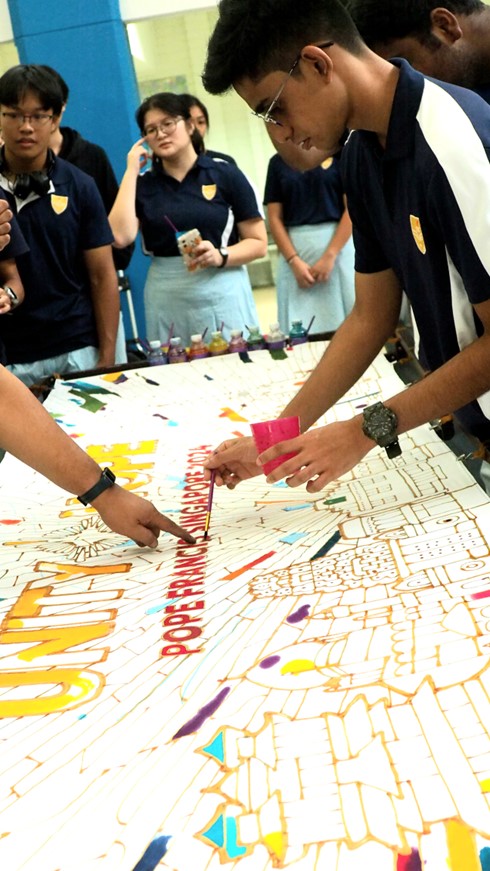 UNITY HOPE
POPE FRANCIS SINGAPORE 2024